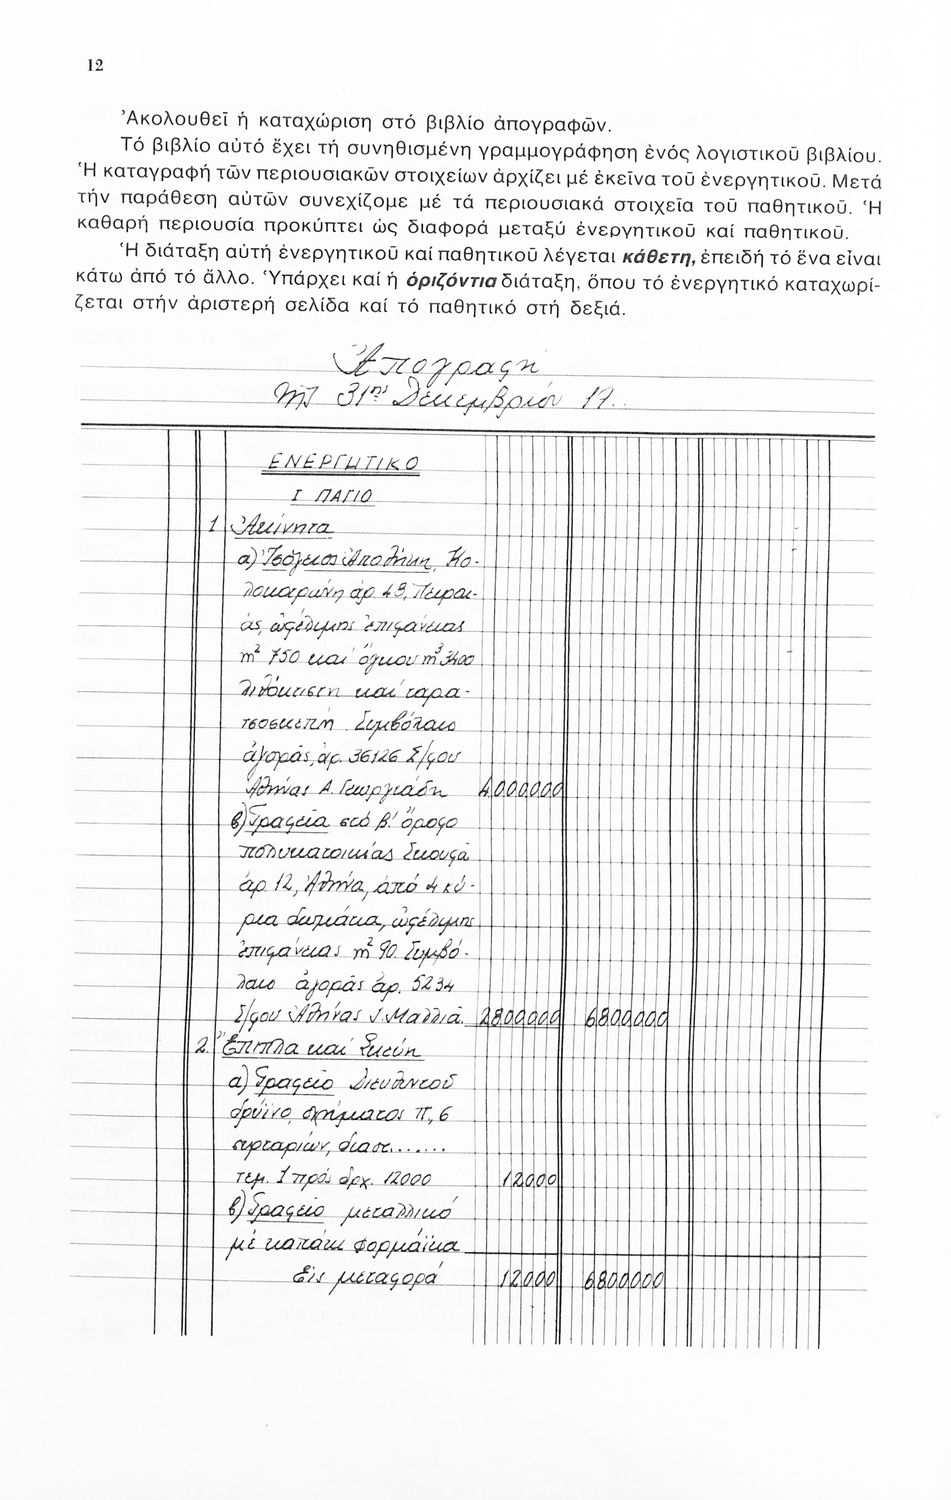 12
Ἀκολουθεῖ ἡ καταχώριση στό βιβλίο ἀπογραφῶν.
Τό βιβλίο αὐτό ἔχει τή συνηθισμένη γραμμογράφηση ἑνός λογιστικοῦ βιβλίου.
Ἡ καταγραφή τῶν περιουσιακῶν στοιχείων ἀρχίζει μέ ἐκεῖνα τοῦ ἐνεργητικοῦ. Μετά
τήν παράθεση αὐτῶν συνεχίζομε μέ τά περιουσιακά στοιχεῖα τοῦ παθητικοῦ. Ἡ
καθαρή περιουσία προκύπτει ὡς διαφορά μεταξύ ἐνεργητικοῦ καί παθητικοῦ.
Ἡ διάταξη αὐτή ἐνεργητικοῦ καί παθητικοῦ λέγεται κάθετη, ἐπειδή τό ἕνα εἶναι
κάτω ἀπό τό ἄλλο. Ὑπάρχει καί ἡ ὁριζόντια διάταξη, ὅπου τό ἐνεργητικό καταχωρί-
ζεται στήν ἀριστερή σελίδα καί τό παθητικό στή δεξιά.
Ἀπογραφή
τῆς 31ης Δεκεμβρίου 19..
ΕΝΕΡΓΗΤΙΚΟ
Ι ΠΑΓΙΟ
1 Ἀκίνητα
α) Ἰσόγειος Ἀποθήκη, Κο-
λοκοτρώνη ἀρ. 48, Πειραι-
ᾶς, ὠφέλιμης ἐπιφάνειας
m² 750 καί ὄγκου m³ 3400
λιθόκτιστη καί ταρα-
τσοσκεπή. Συμβόλαιο
ἀγορᾶς, ἀρ. 36126 Σ/φου
Ἀθήνας Α. Γεωργιάδη 4.000.000
β) Γραφεῖα στό β΄ ὄροφο
πολυκατοικίας Σκουφᾶ
ἀρ. 12, Ἀθήνα, ἀπό 4 κύ-
ρια δωμάτια, ὠφέλιμης
ἐπιφάνειας m² 90. Συμβό-
λαιο ἀγορᾶς ἀρ. 5234
Σ/φου Ἀθήνας Ι. Μαλλιᾶ. 2.800.000 6.800.000
2. Ἔπιπλα καί Σκεύη
α) Γραφεῖο Διευθυντοῦ
δρύϊνο, σχήματος Π, 6
συρταριῶν, διαστ.......
τεμ. 1 πρός δρχ. 12000 12.000
β) Γραφεῖο μεταλλικό
μέ καπάκι φορμάϊκα
Εἰς μεταφορά 12.000 6.800.000